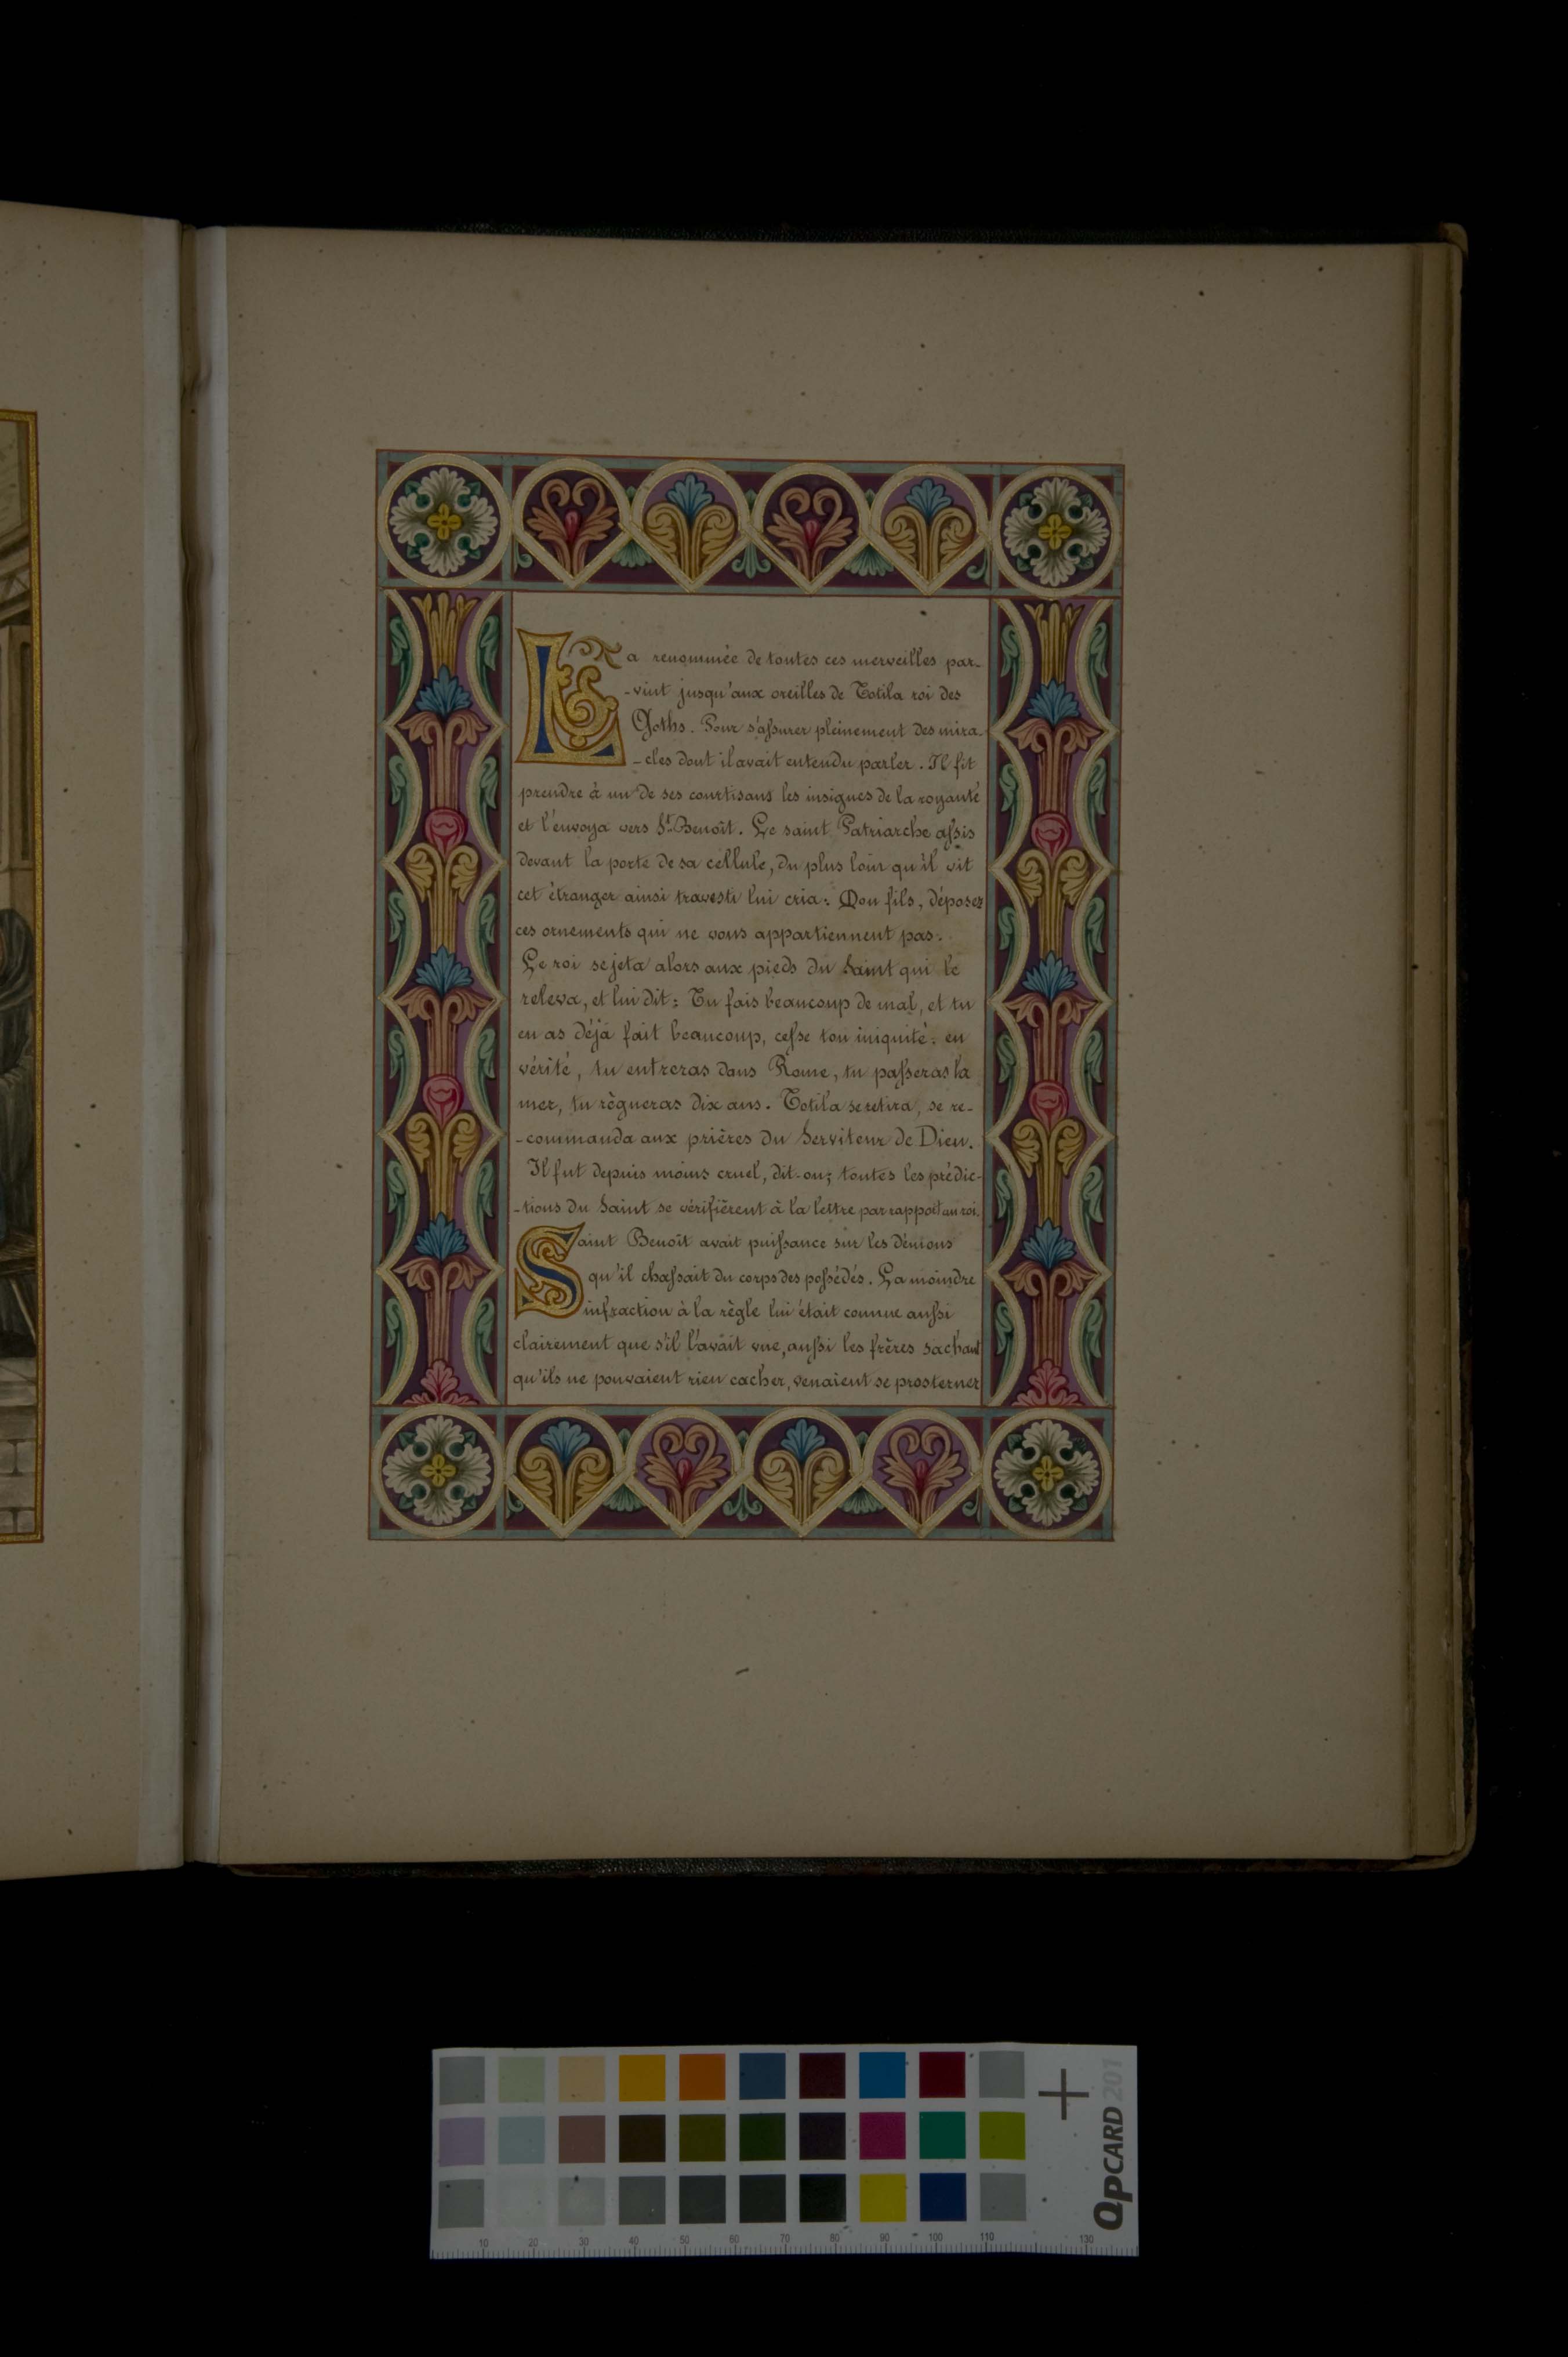 La renommée de toutes ces merveilles par-
-vint jusqu'aux oreilles de Totila roi des
Goths. Pour s'aſsurer pleinement des mira-
-cles dont il avait entendu parler. Il fit
prendre à un de ses courtisans les insignes de la royauté
et l'envoya vers St. Benoît. Le saint Patriarche aſsis
devant la porte de sa cellule, du plus loin qu'il vit
cet étranger ainsi travesti lui cria: Mon fils, déposez
ces ornements qui ne vous appartiennent pas.
Le roi se jeta alors aux pieds du Saint qui le
releva, et lui dit: Tu fais beaucoup de mal, et tu
en as déjà fait beaucoup, ceſse ton iniquité: en
vérité, tu entreras dans Rome, tu paſseras la
mer, tu règneras dix ans. Totila se retira, se re-
-commanda aux prières du Serviteur de Dieu.
Il fut depuis moins cruel, dit-on; toutes les prédic-
-tions du Saint se vérifièrent à la lettre par rapport au roi.
Saint Benoît avait puiſsance sur les démons
qu'il chaſsait du corps des poſsédés. La moindre
infraction à la règle lui était connue auſsi
clairement que s'il l'avait vue, auſsi les frères sachant
qu'ils ne pouvaient rien cacher, venaient se prosterner
QPCARD 201
10 20 30 40 50 60 70 80 90 100 110 130